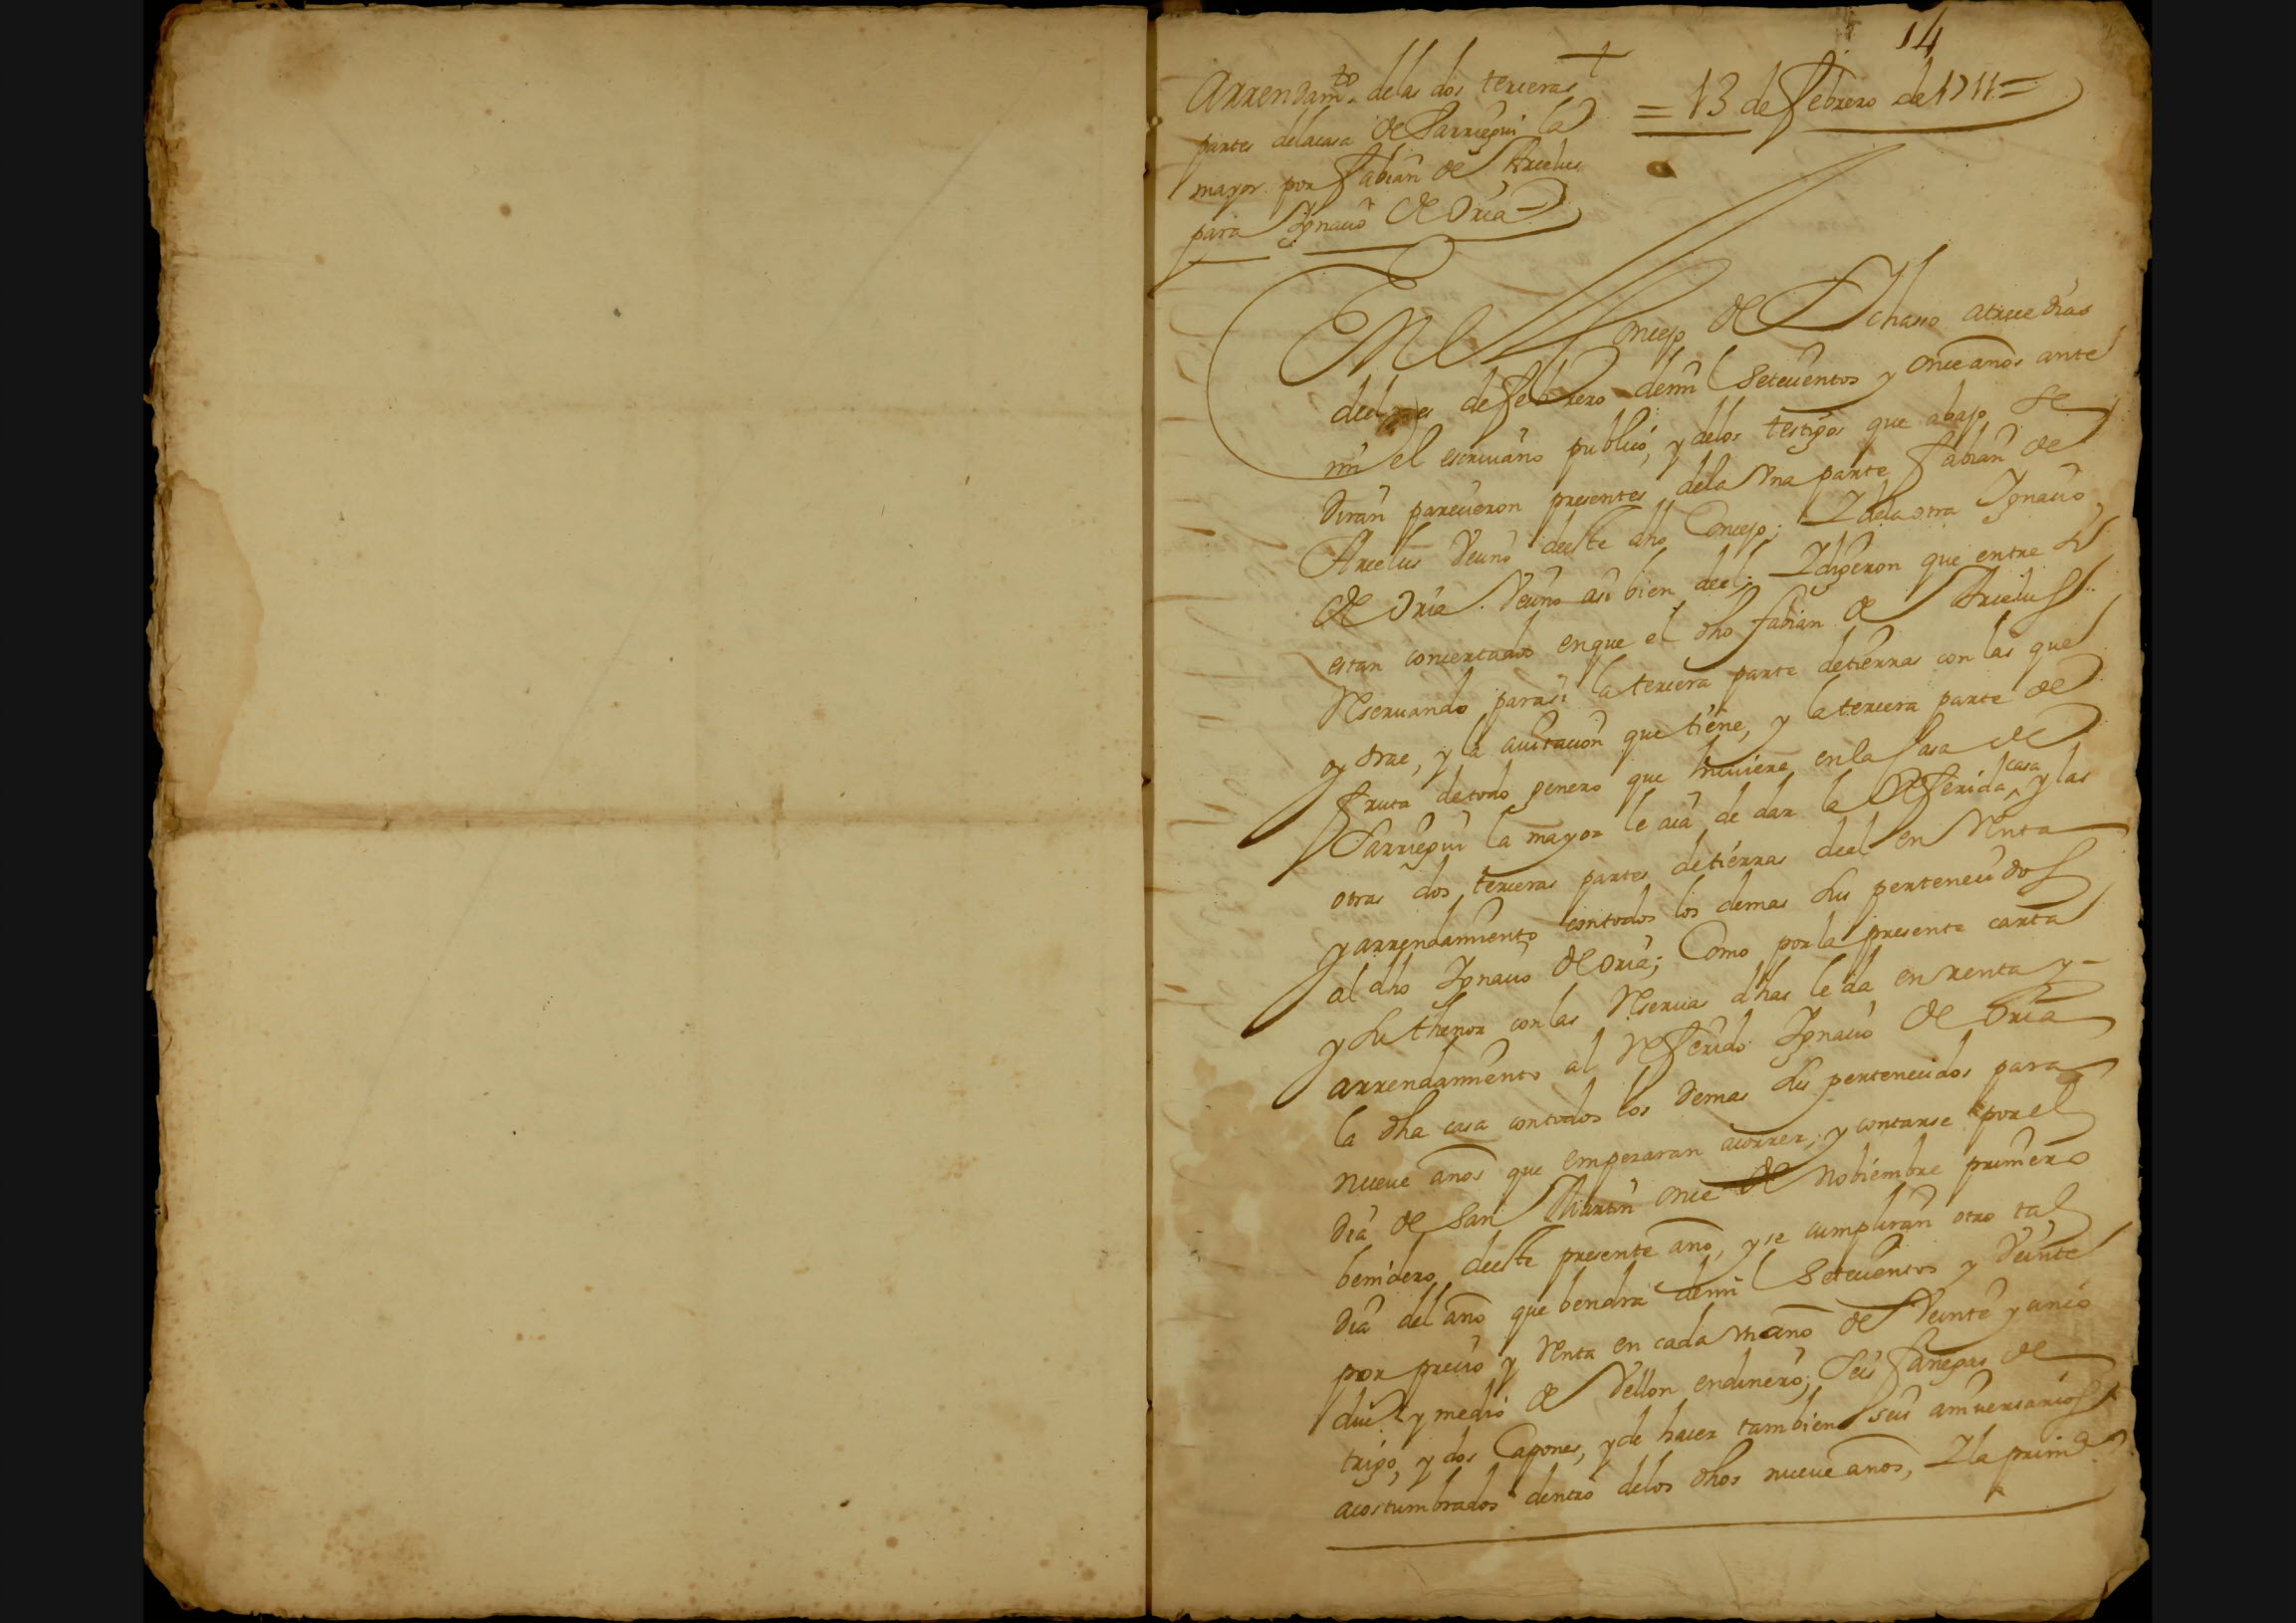 14
Arrendam.to delas dos terceras
partes delacasa de Sarriegui la
mayor por fabian de Arcelus
para Ygnacio de Oria
= 13 de febrero de 1711 =
En el Concejo de Ychasso atrece dias
deel mes defebrero demil Setecientos y onceaños ante
mi el escriuano publico, y delos testigos que abajo se
diran parecieron presentes dela vna parte fabian de
Arcelus Vecino deeste dho Concejo; Y dela otra Ygnacio
de Oria Vecino asi bien deel; Y dijeron que entre Si
estan concertados enque el dho fabian de Arcelus
Reseruando parasi latercera parte detierras con las que
oy trae, y la auitacion que tiene, y latercera parte de
fruta detodo genero que huuiere enla Casa de
Sarriegui la mayor le aia de dar la Referida casa y las
otras dos terceras partes detierras deel en Renta
y arrendamiento contodos los demas Sus pertenecidos
al dho Ygnacio de Oria; Como porla presente carta
y Su thenor conlas Reseruas dhas le da en renta y-
arrendamiento al Referido Ygnacio de Oria
la dha casa contodos los demas Sus pertenecidos para
nueve años que empezaran acorrer, y contarse por el
dia de San Martin once de Nobiembre primero
benidero deeste presente año, y se cumpliran otro tal
dia del año que bendra demil Setecientos y Veinte
por precio y Renta en cada vn año de Veinte y cinco
duc.s y medio de Vellon endinero, Seis fanegas de
trigo, y dos Capones, y de hacer tambien seis aniversarios
acostumbrados dentro delos dhos nueve años, Y la prim.a